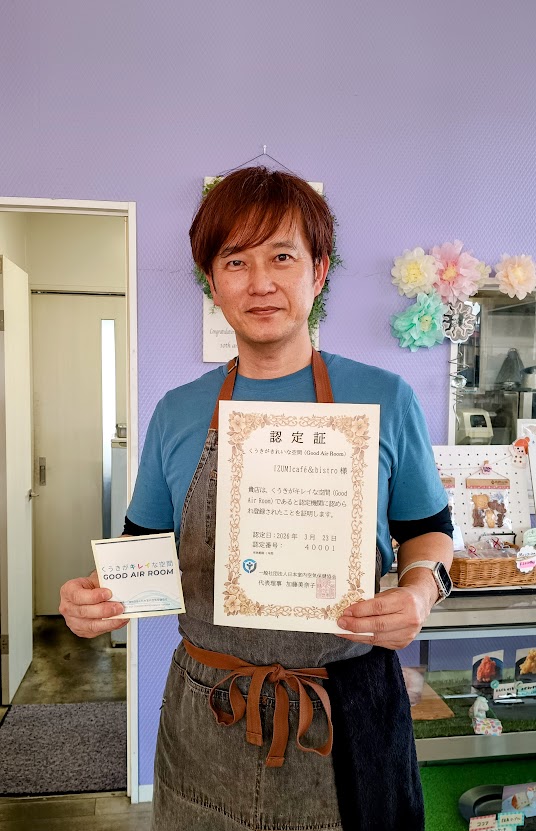 認定証
くうきがきれいな空間 (Good Air Room)
IZUMIcafé&bistro 様
貴店は、くうきがキレイな空間 (Good
Air Room) であると認定機関に認めら
れ登録されたことを証明します。
認定日：2026年 3月 23日
認定番号： 40001
一般社団法人日本室内空気保健協会
代表理事 加藤美奈子
くうきがキレイな空間
GOOD AIR ROOM